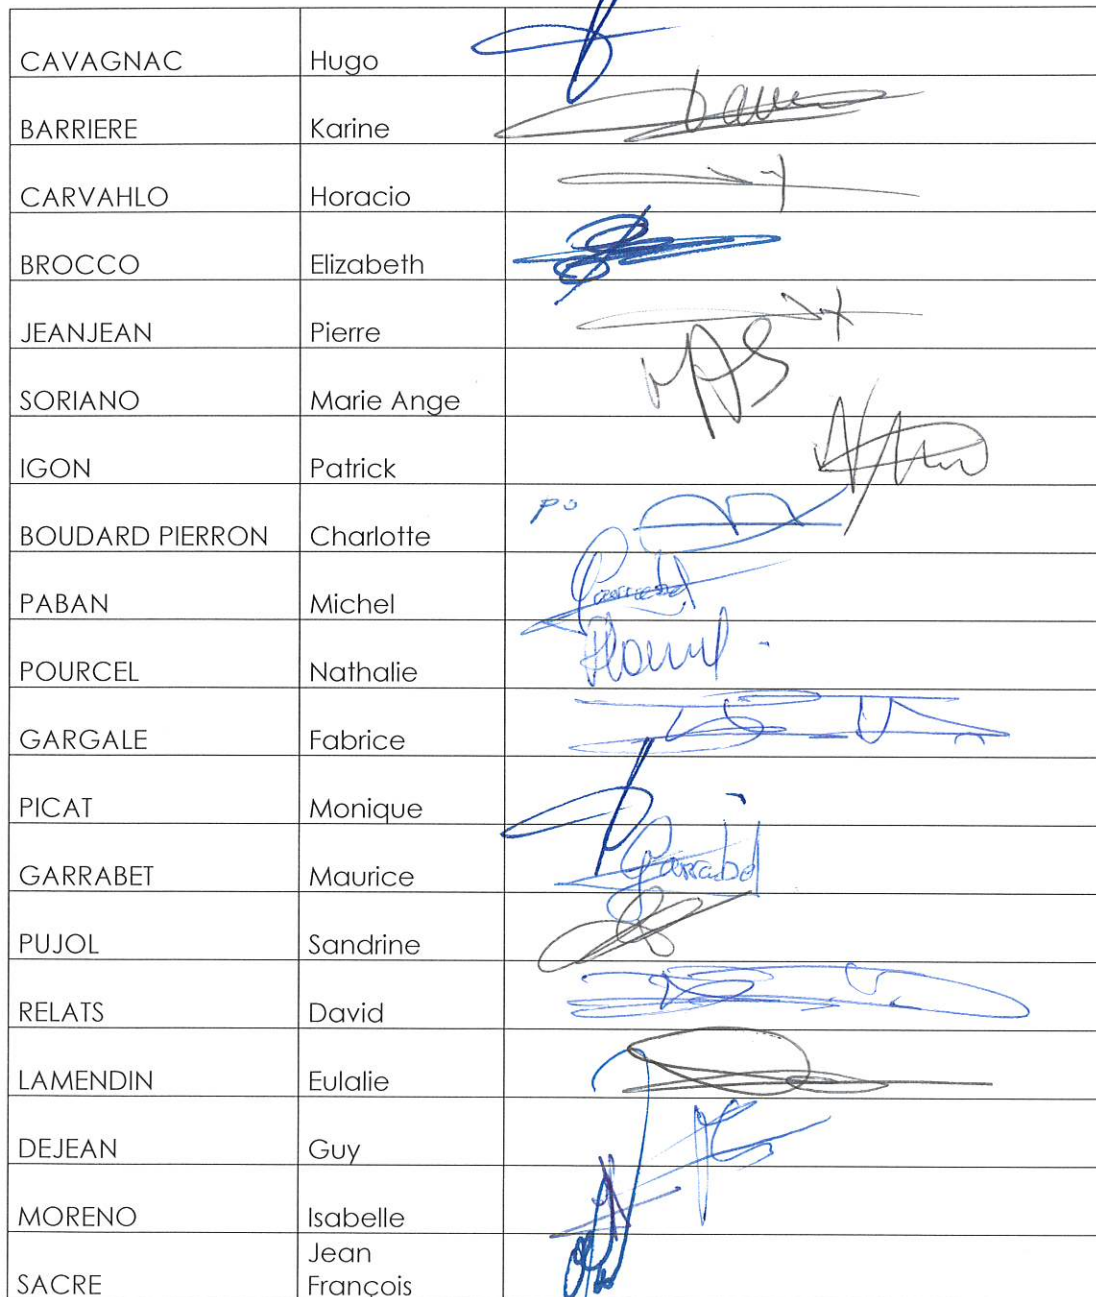 CAVAGNAC Hugo
BARRIERE Karine
CARVAHLO Horacio
BROCCO Elizabeth
JEANJEAN Pierre
SORIANO Marie Ange MAS
IGON Patrick
BOUDARD PIERRON Charlotte po
PABAN Michel
POURCEL Nathalie
GARGALE Fabrice
PICAT Monique
GARRABET Maurice
PUJOL Sandrine
RELATS David
LAMENDIN Eulalie
DEJEAN Guy
MORENO Isabelle
Jean
SACRE François